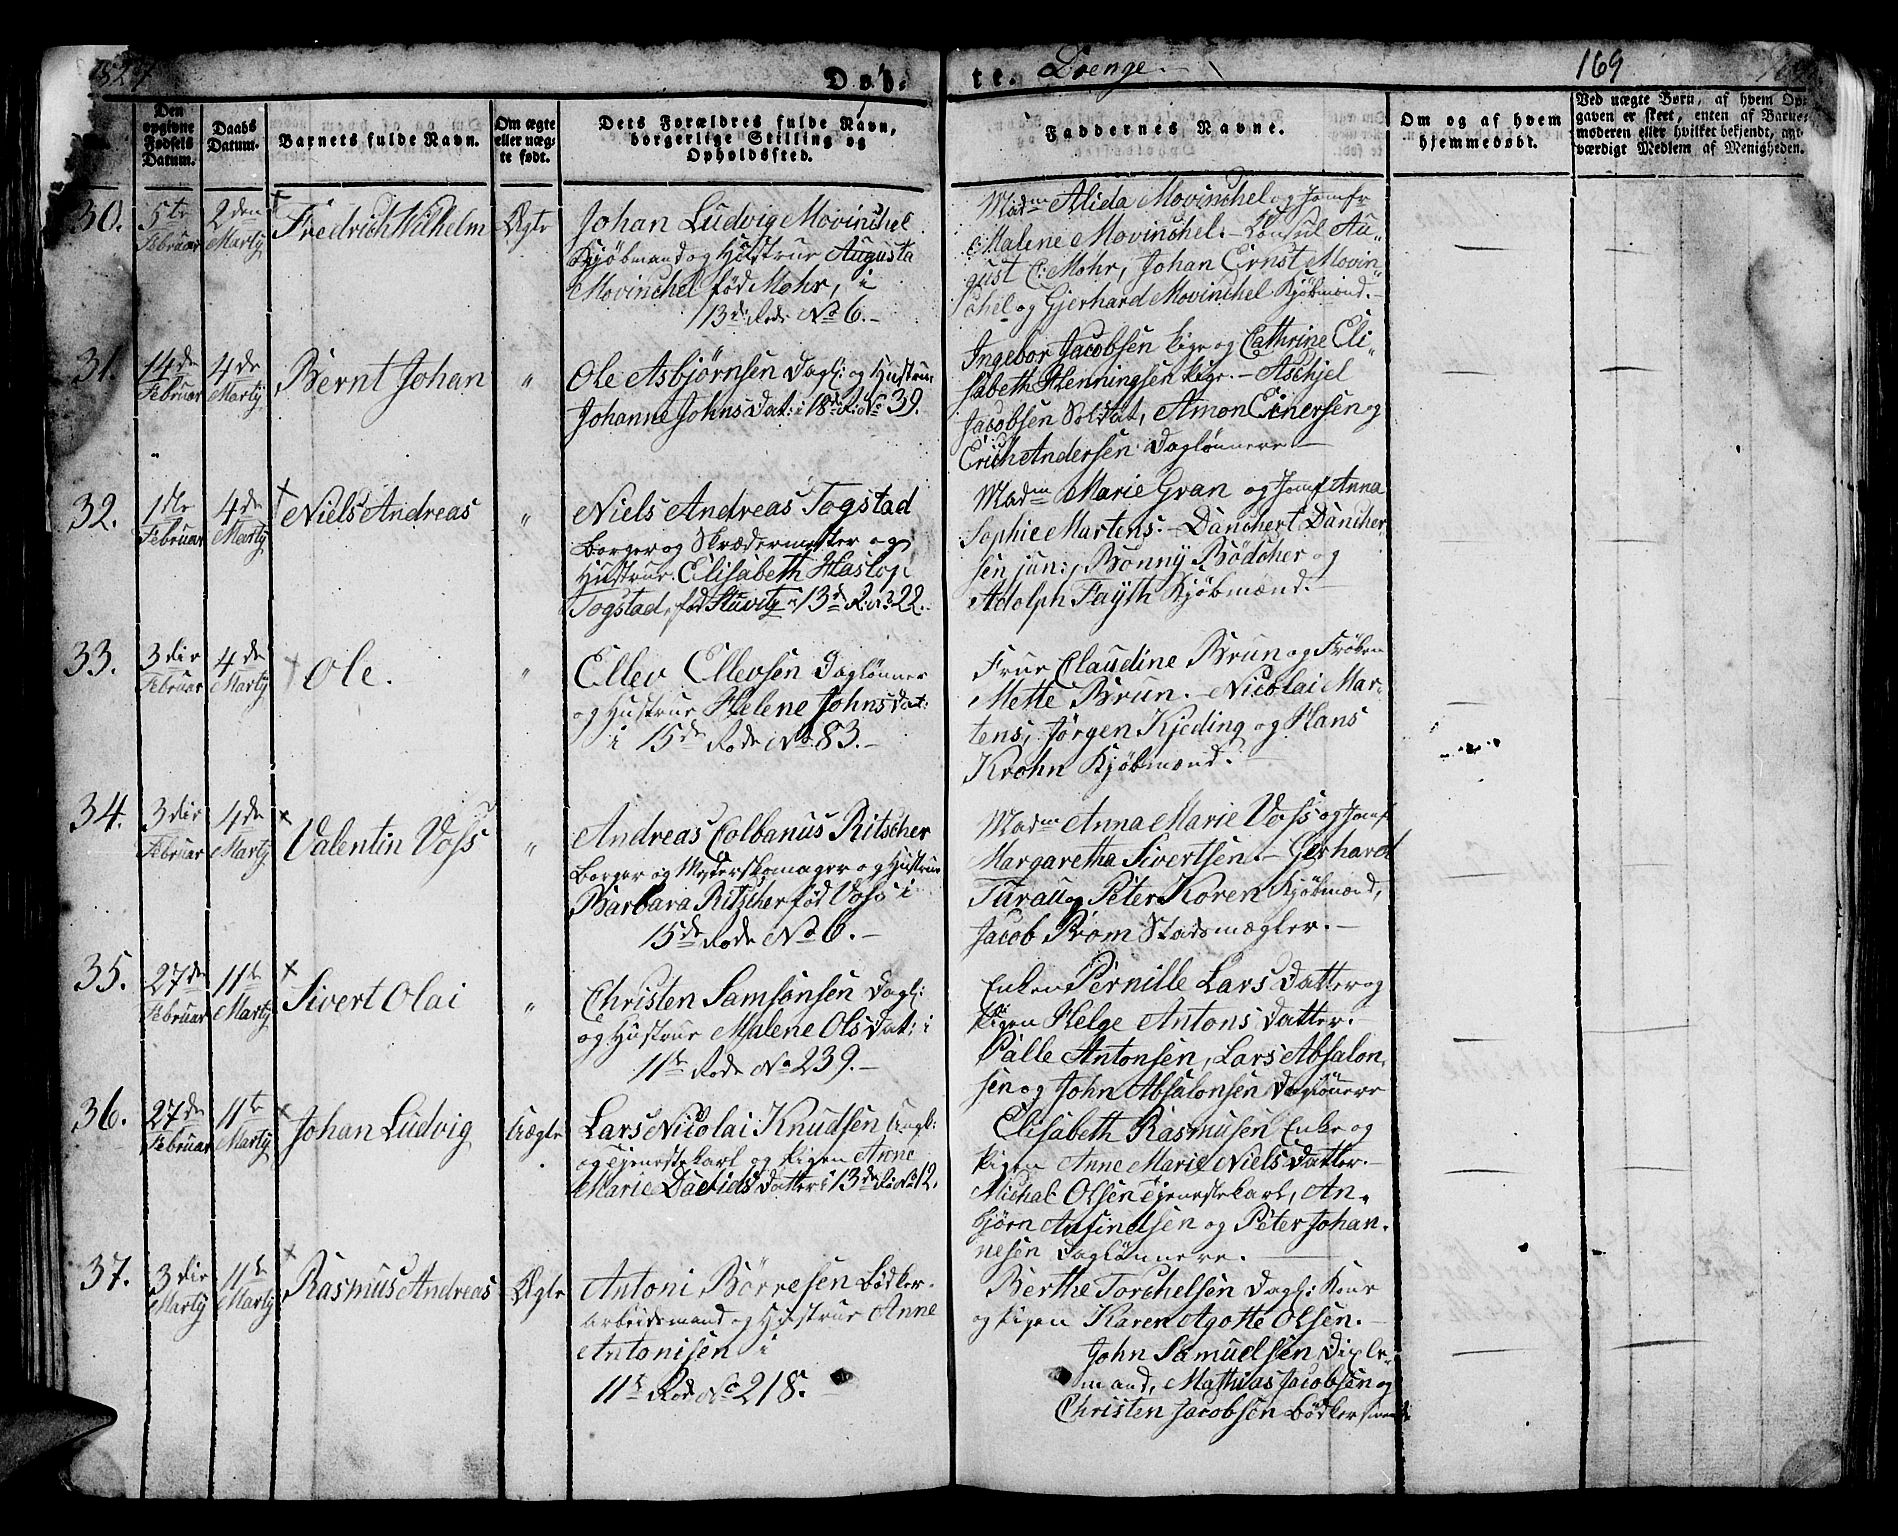 1827
Døb-
te. Drenge.
169
Den opgivne Fødsels Datum.
Daabs Datum.
Barnets fulde Navn.
Om ægte eller uægte født.
Dets Forældres fulde Navn, borgerlige Stilling og Opholdssted.
Faddernes Navne.
Om og af hvem hjemmedøbt.
Ved uægte Børn, af hvem Opgaven er skeet, enten af Barnemoderen eller hvilket bekjendt, agtværdigt Medlem af Menigheden.
30. 5te Februar
2den Marty
Fredrich Wilhelm
Ægte
Johan Ludvig Movinchel
Kjøbmand og Hustrue Augusta
Movinchel fød Mohr, i
13de Rode No 6.
Madm Alida Movinchel og Jomfr
Malene Movinchel. Consul Au-
gust C: Mohr, Johan Ernst Movin-
chel og Gjerhard Movinchel Kjøbmænd.
31. 14de Februar
4de Marty
Bernt Johan
"
Ole Asbjørnsen Dagl: og Hustrue
Johanne Johnsdat: i 18de R. No 39.
Ingebor Jacobsen Pige og Cathrine Eli-
sabeth Henningsen Pige. Aschjel
Jacobsen Soldat, Amon Einersen og
Erich Andersen Daglønnere
32. 1ste Februar
4de Marty
Niels Andreas
"
Niels Andreas Togstad
Borger og Skrædermester og
Hustrue Elisabeth Haslop
Togstad, fød Stuvitz i 13de R. No 22.
Madm Marie Gran og Jomf Anna
Sophie Martens. Danchert Dancher-
sen jun:, Bonny Bødcher og
Adolph Fayth Kjøbmænd.
33. 3die Februar
4de Marty
Ole.
"
Ellev Ellevsen Daglønner
og Hustrue Helene Johnsdat:
i 15de Rode No 83.
Frue Claudine Brun og Frøken
Mette Brun. Nicolai Mar-
tens, Jørgen Kjeding og Hans
Krohn Kjøbmænd.
34. 3die Februar
4de Marty
Valentin Voss
"
Andreas Colbanus Ritscher
Borger og Mesterskomager og Hustrue
Barbara Ritscher fød Voss i
15de Rode No 6.
Madm Anna Marie Voss og Jomf
Margaretha Sivertsen. Gerhard
Turau og Peter Koren Kjøbmænd,
Jacob Prom Stadsmægler.
35. 27de Februar
11te Marty
Sivert Olai
"
Christen Samsonsen Dagl:
og Hustrue Malene Olsdat: i
11te Rode No 239.
Enken Pernille Larsdatter og
Pigen Helge Antonsdatter.
Palle Antonsen, Lars Absalon-
sen og John Absalonsen Daglønnere
36. 27de Februar
11te Marty
Johan Ludvig
Uægte
Lars Nicolai Knudsen Ungk:
og Tjenestekarl og Pigen Anne
Marie Davidsdatter i 13de R. No 12.
Elisabeth Rasmusen Enke og
Pigen Anne Marie Nielsdatter.
Michal Olsen Tjenestekarl, An-
bjørn Ansindsen og Peter Johan-
nesen Daglønnere.
37. 3die Marty
11te Marty
Rasmus Andreas
Ægte
Antoni Børresen Bødker-
arbeidsmand og Hustrue Anne
Antonisen i
11te Rode No 218.
Berthe Torchelsen Dagl: Kone
og Pigen Karen Agotte Olsen.
John Samuelsen
mand, Mathias Jacobsen og
Christen Jacobsen Bødkersvende